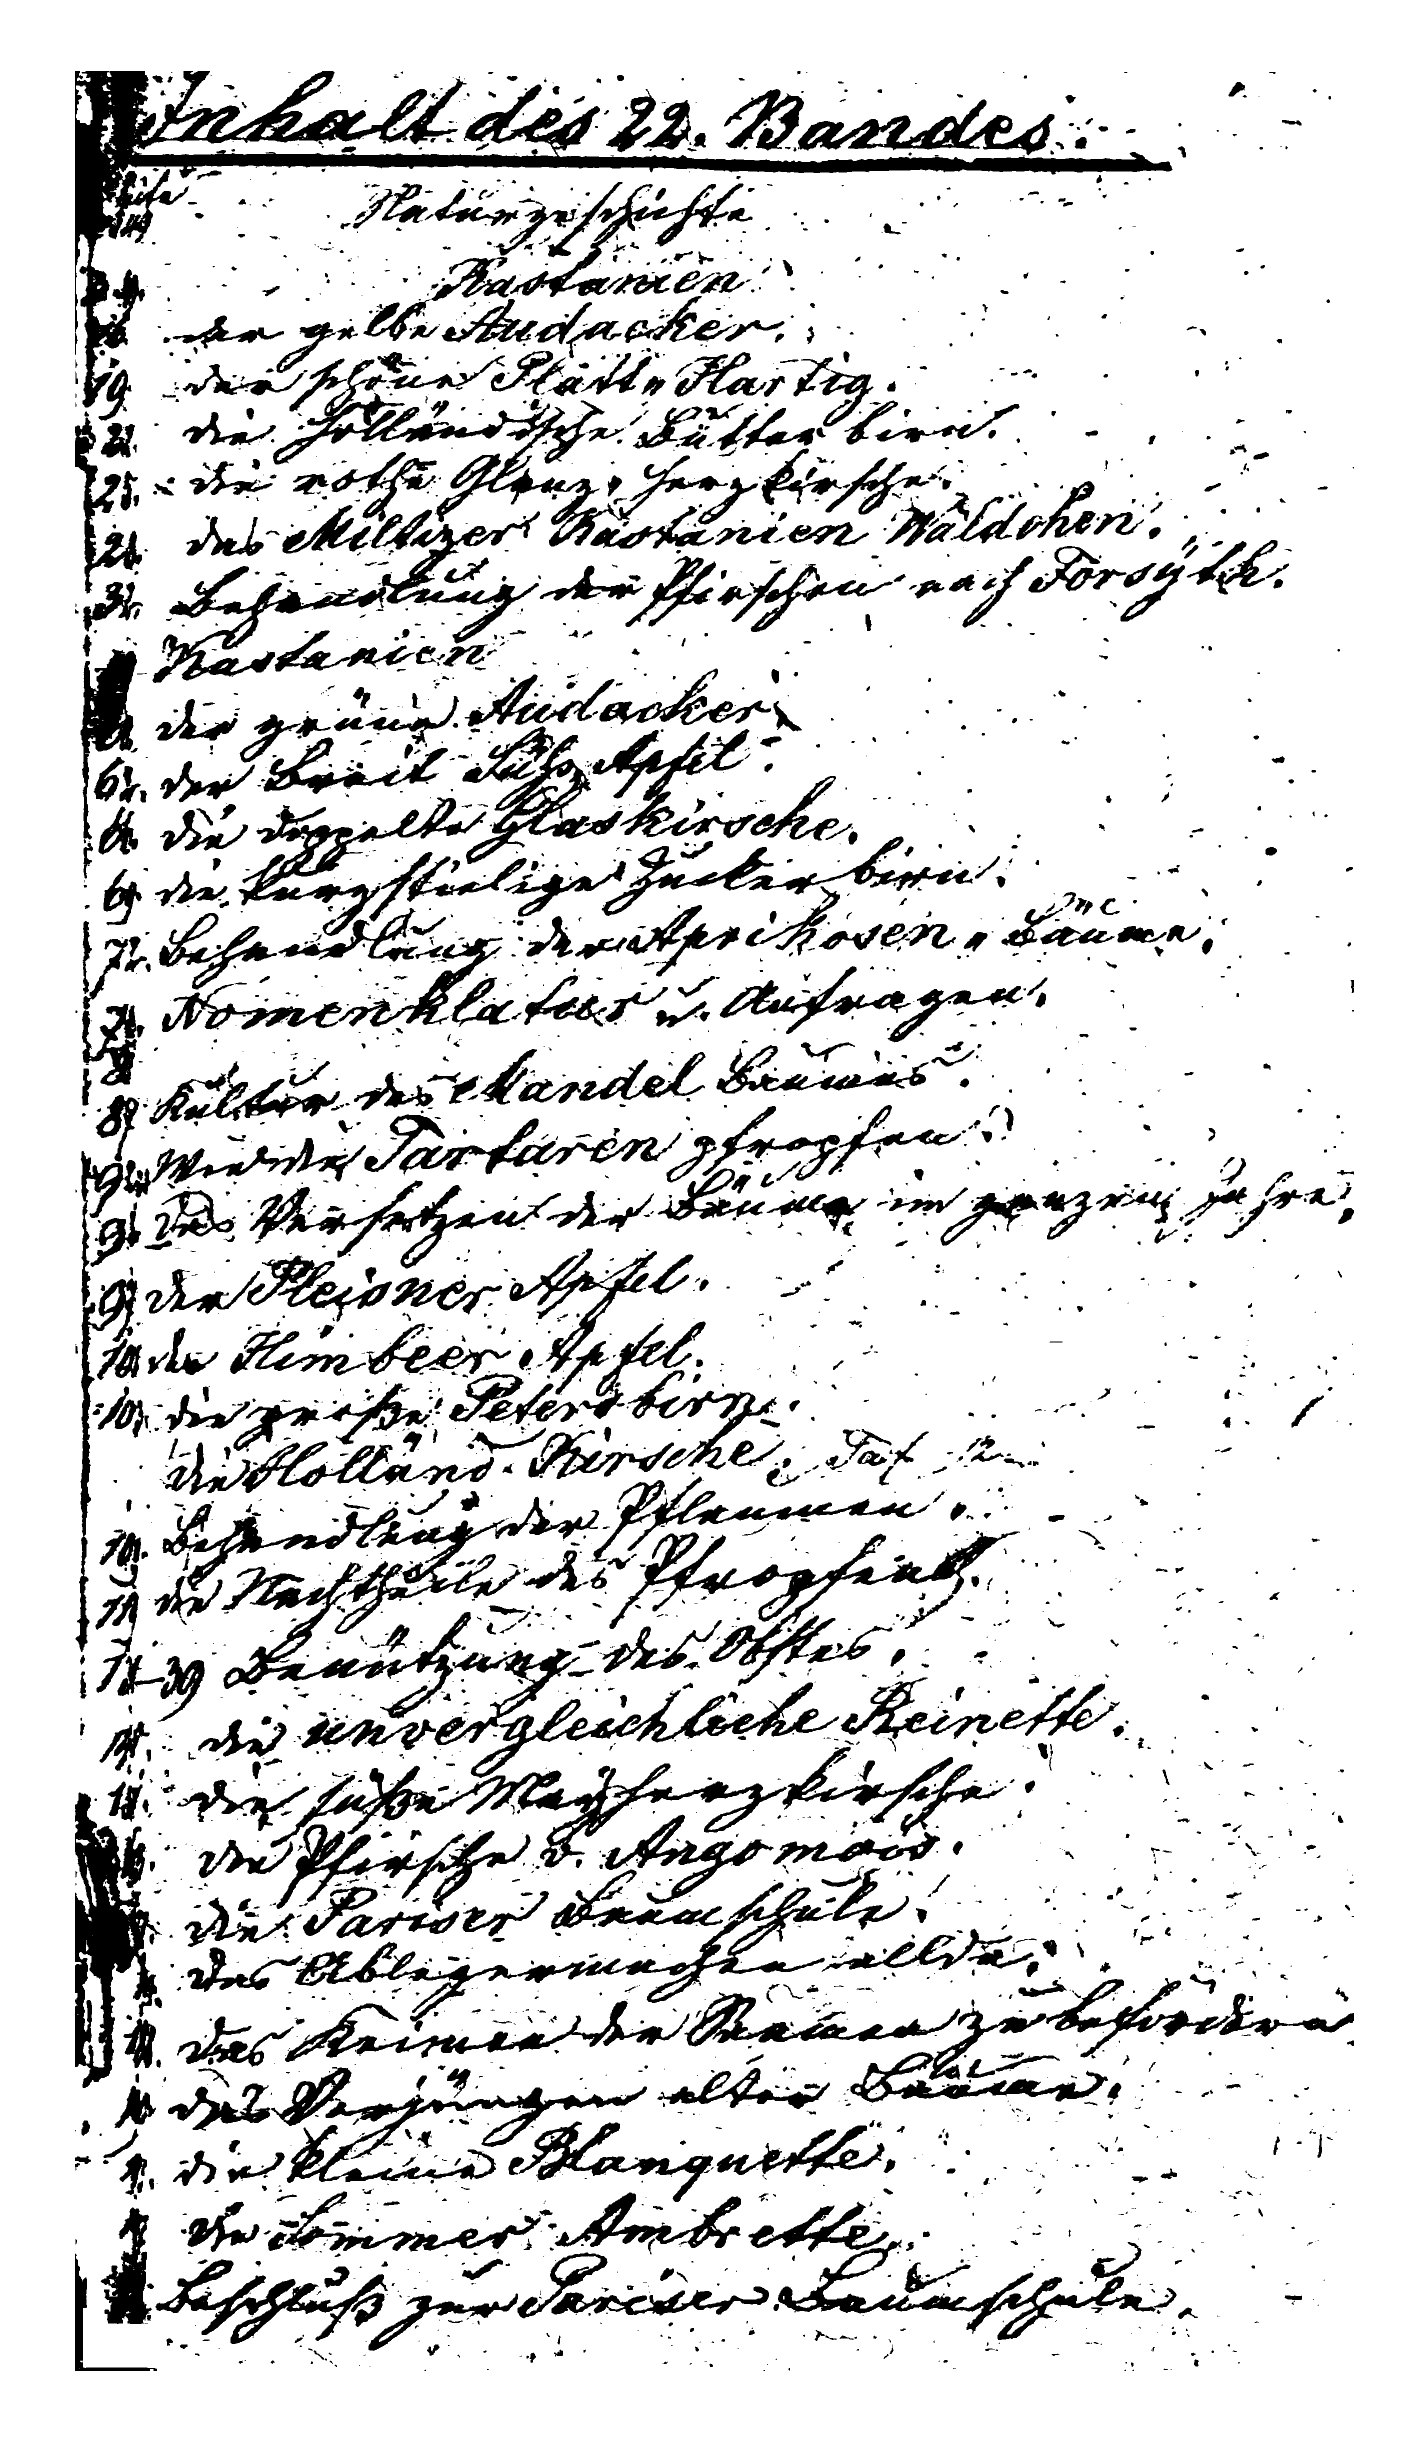 Inhalt des 22. Bandes.
Seite
Naturgeschichte
Kastanien
der gelbe Audacker.
19 der schöne Platt„Hartig.
22. die Holländische Butter birn.
25. die rothe Glanz„herzkirsche.
das Miltizer Kastanien Wäldchen.
Behandlung der Pfirschen nach Forsÿth.
Kastanien
der grüne Audacker
der Breit Süß Apfel.
die doppelte Glaskirsche.
die kurzstielige Zucker birn.
Behandlung der Aprikosen„Bäume.
Nomenklatur u. Anfragen.
Kultur des Mandel Baumes.
Wie die Tartaren pfropfen.
das Versetzen der Bäume im ganzen Jahre.
der Pleisner Apfel.
der Himbeer Apfel.
die große Petersbirn.
die Holländ. Kirsche. Taf 12
Behandlung der Pflaumen.
die Nachtheile des Pfropfens.
39 Benützung des Obstes.
die unvergleichliche Reinette.
die süße Mayherzkirsche.
die Pfirsche v. Angomois.
die Pariser Baumschule.
das Ablegermachen allda.
das Keimen der Saamen zu befördern
das Verjüngen alter Bäume.
die kleine Blanquette.
die Sommer Ambrette.
Beschluß zur Pariser Baumschule.